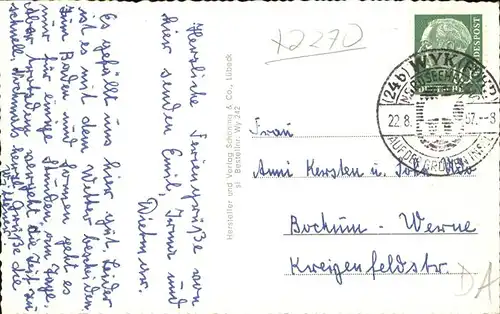 Herzliche Feriengrüße von
hier senden Emil, Irma und
Dietmar.
Es gefällt uns hier gut. Leider
ist es mit dem Wetter bescheiden.
Zum Baden und Sonnen geht es
nur für einige Stunden am Tage,
aber trotzdem vergeht die Zeit zu
schnell. Nochmals herzl. Grüße die
Hersteller und Verlag Schöning & Co., Lübeck
Bestellnr. Wy 242
x2270
DEUTSCHE BUNDESPOST
(24b) WYK (FÖHR)
NORDSEEHEILBAD
22.8. 57.-8
AUF DER GRÜNEN INSEL
Frau
Anni Kersten u.
Bochum - Werne
Kreyenfeldstr.
DA